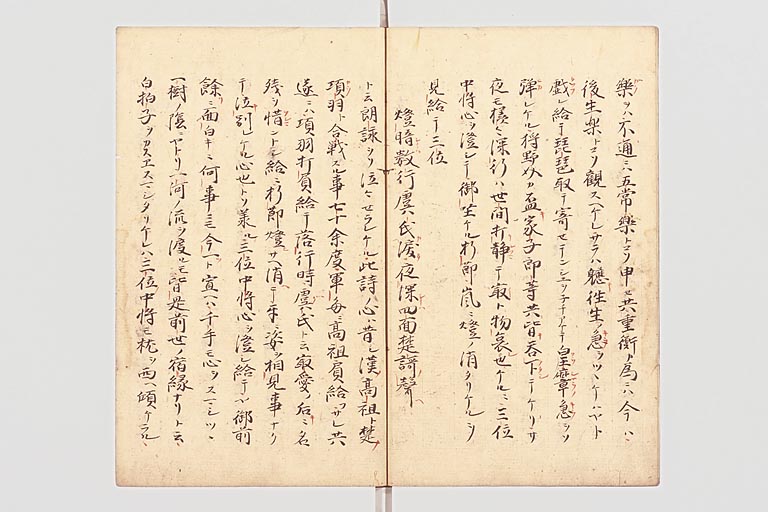 樂ヲハ不通ニハ五常樂トコソ申セ共重衡カ為ニハ今ハハ
後生樂トコソ觀スヘケレサラハ軈往生ノ急ヲツケハヤト
戯レ給テ琵琶取テ寄セテンシュヲ子チテ皇麞急ヲソ
弾レケル狩野介カ盃家子郎等共皆呑下テケリサ
夜モ様々深行ハ世間打静テ最ト物哀也ケルニ三位
中将心ヲ澄シテ御坐ケル折節嵐ニ燈ノ消タリケルヲ
見給テ三位
燈暗數行虞氏涙夜深四面楚謌聲
ト云朗詠ヲソ泣々セラレケル此詩ノ心ハ昔シ漢高祖ト楚
項羽ト合戦スル事七十余度軍毎ニ高祖負給フサレ共
遂ニハ項羽打負給テ落行時虞氏ト云最愛ノ后ニ名
残ヲ惜ントシ給ニ折節燈サヘ消テ互ニ姿ヲ相見事ナク
テ泣別レケル心也トソ美ル三位中将心ヲ澄シ給テハ御前
餘ニ面白キニ何事ニモ今一ト宣ヘハ千手モ心ヲスマシツヽ
一樹ノ陰ニヤトリ一河ノ流ヲ渡ルモ皆是前世ノ宿縁ナリト云
白拍子ヲカスエスマシタリケレハ三位中将モ枕ヲ西ヘ傾ケラル